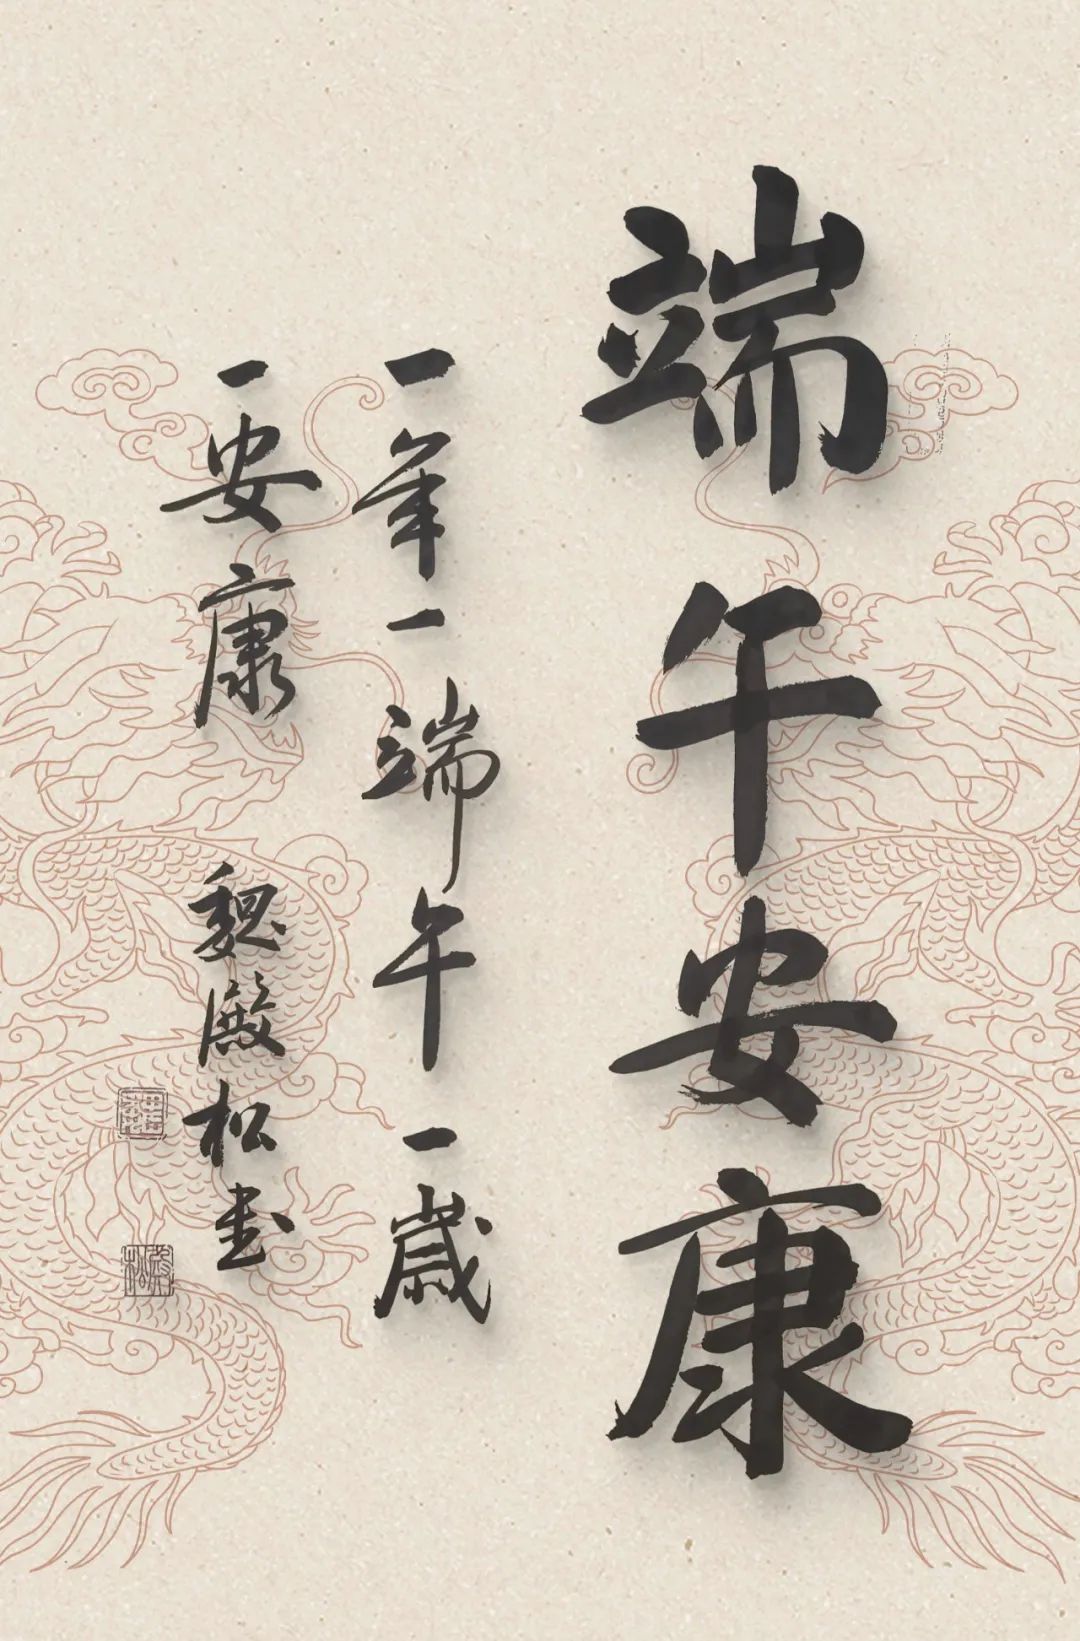 端午安康
一年一端午一歲
一安康
魏殿松书